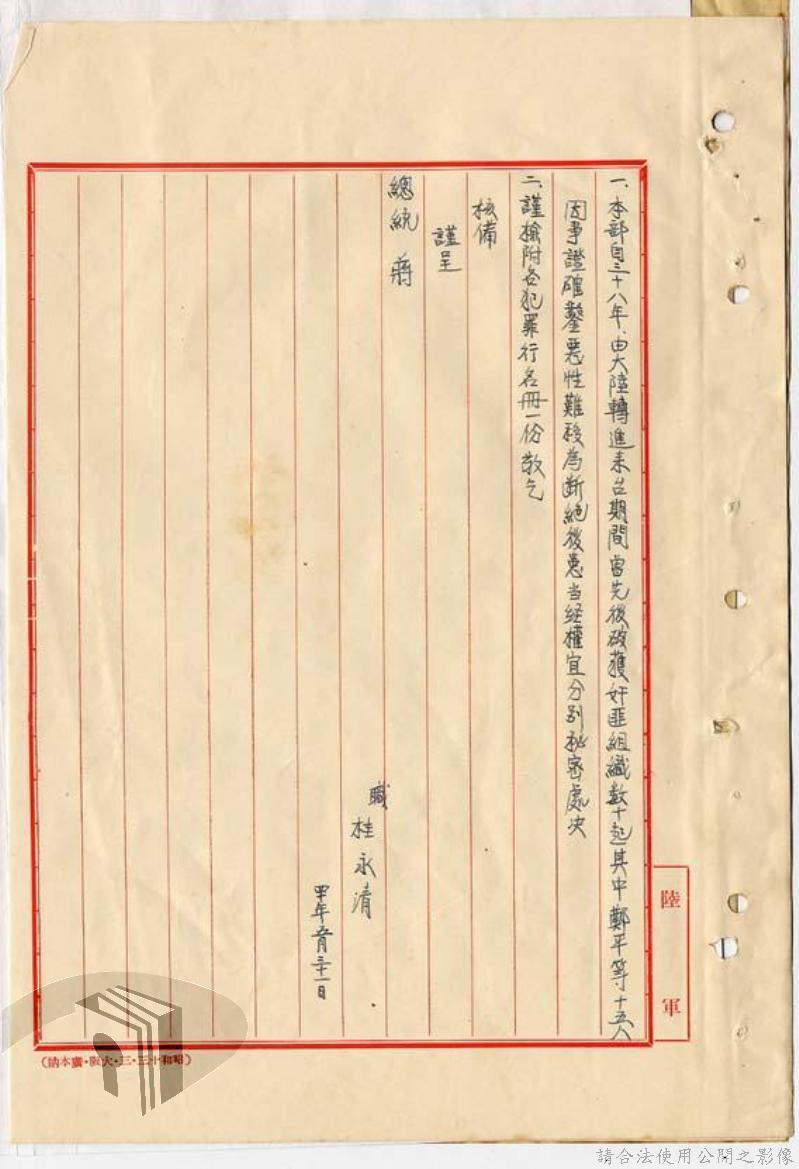 陸軍
一、本部自三十八年、由大陸轉進來台期間曾先後破獲奸匪組織數十起其中鄭平等十五人
因事證確鑿惡性難移為断絕後患当経權宜分别秘密處决
二、謹檢附各犯罪行名冊一份敬乞
核備
謹呈
總統 蔣
職 桂永清
年 月三十一日
(昭和十三・三・大阪・廣本納)
請合法使用公開之影像